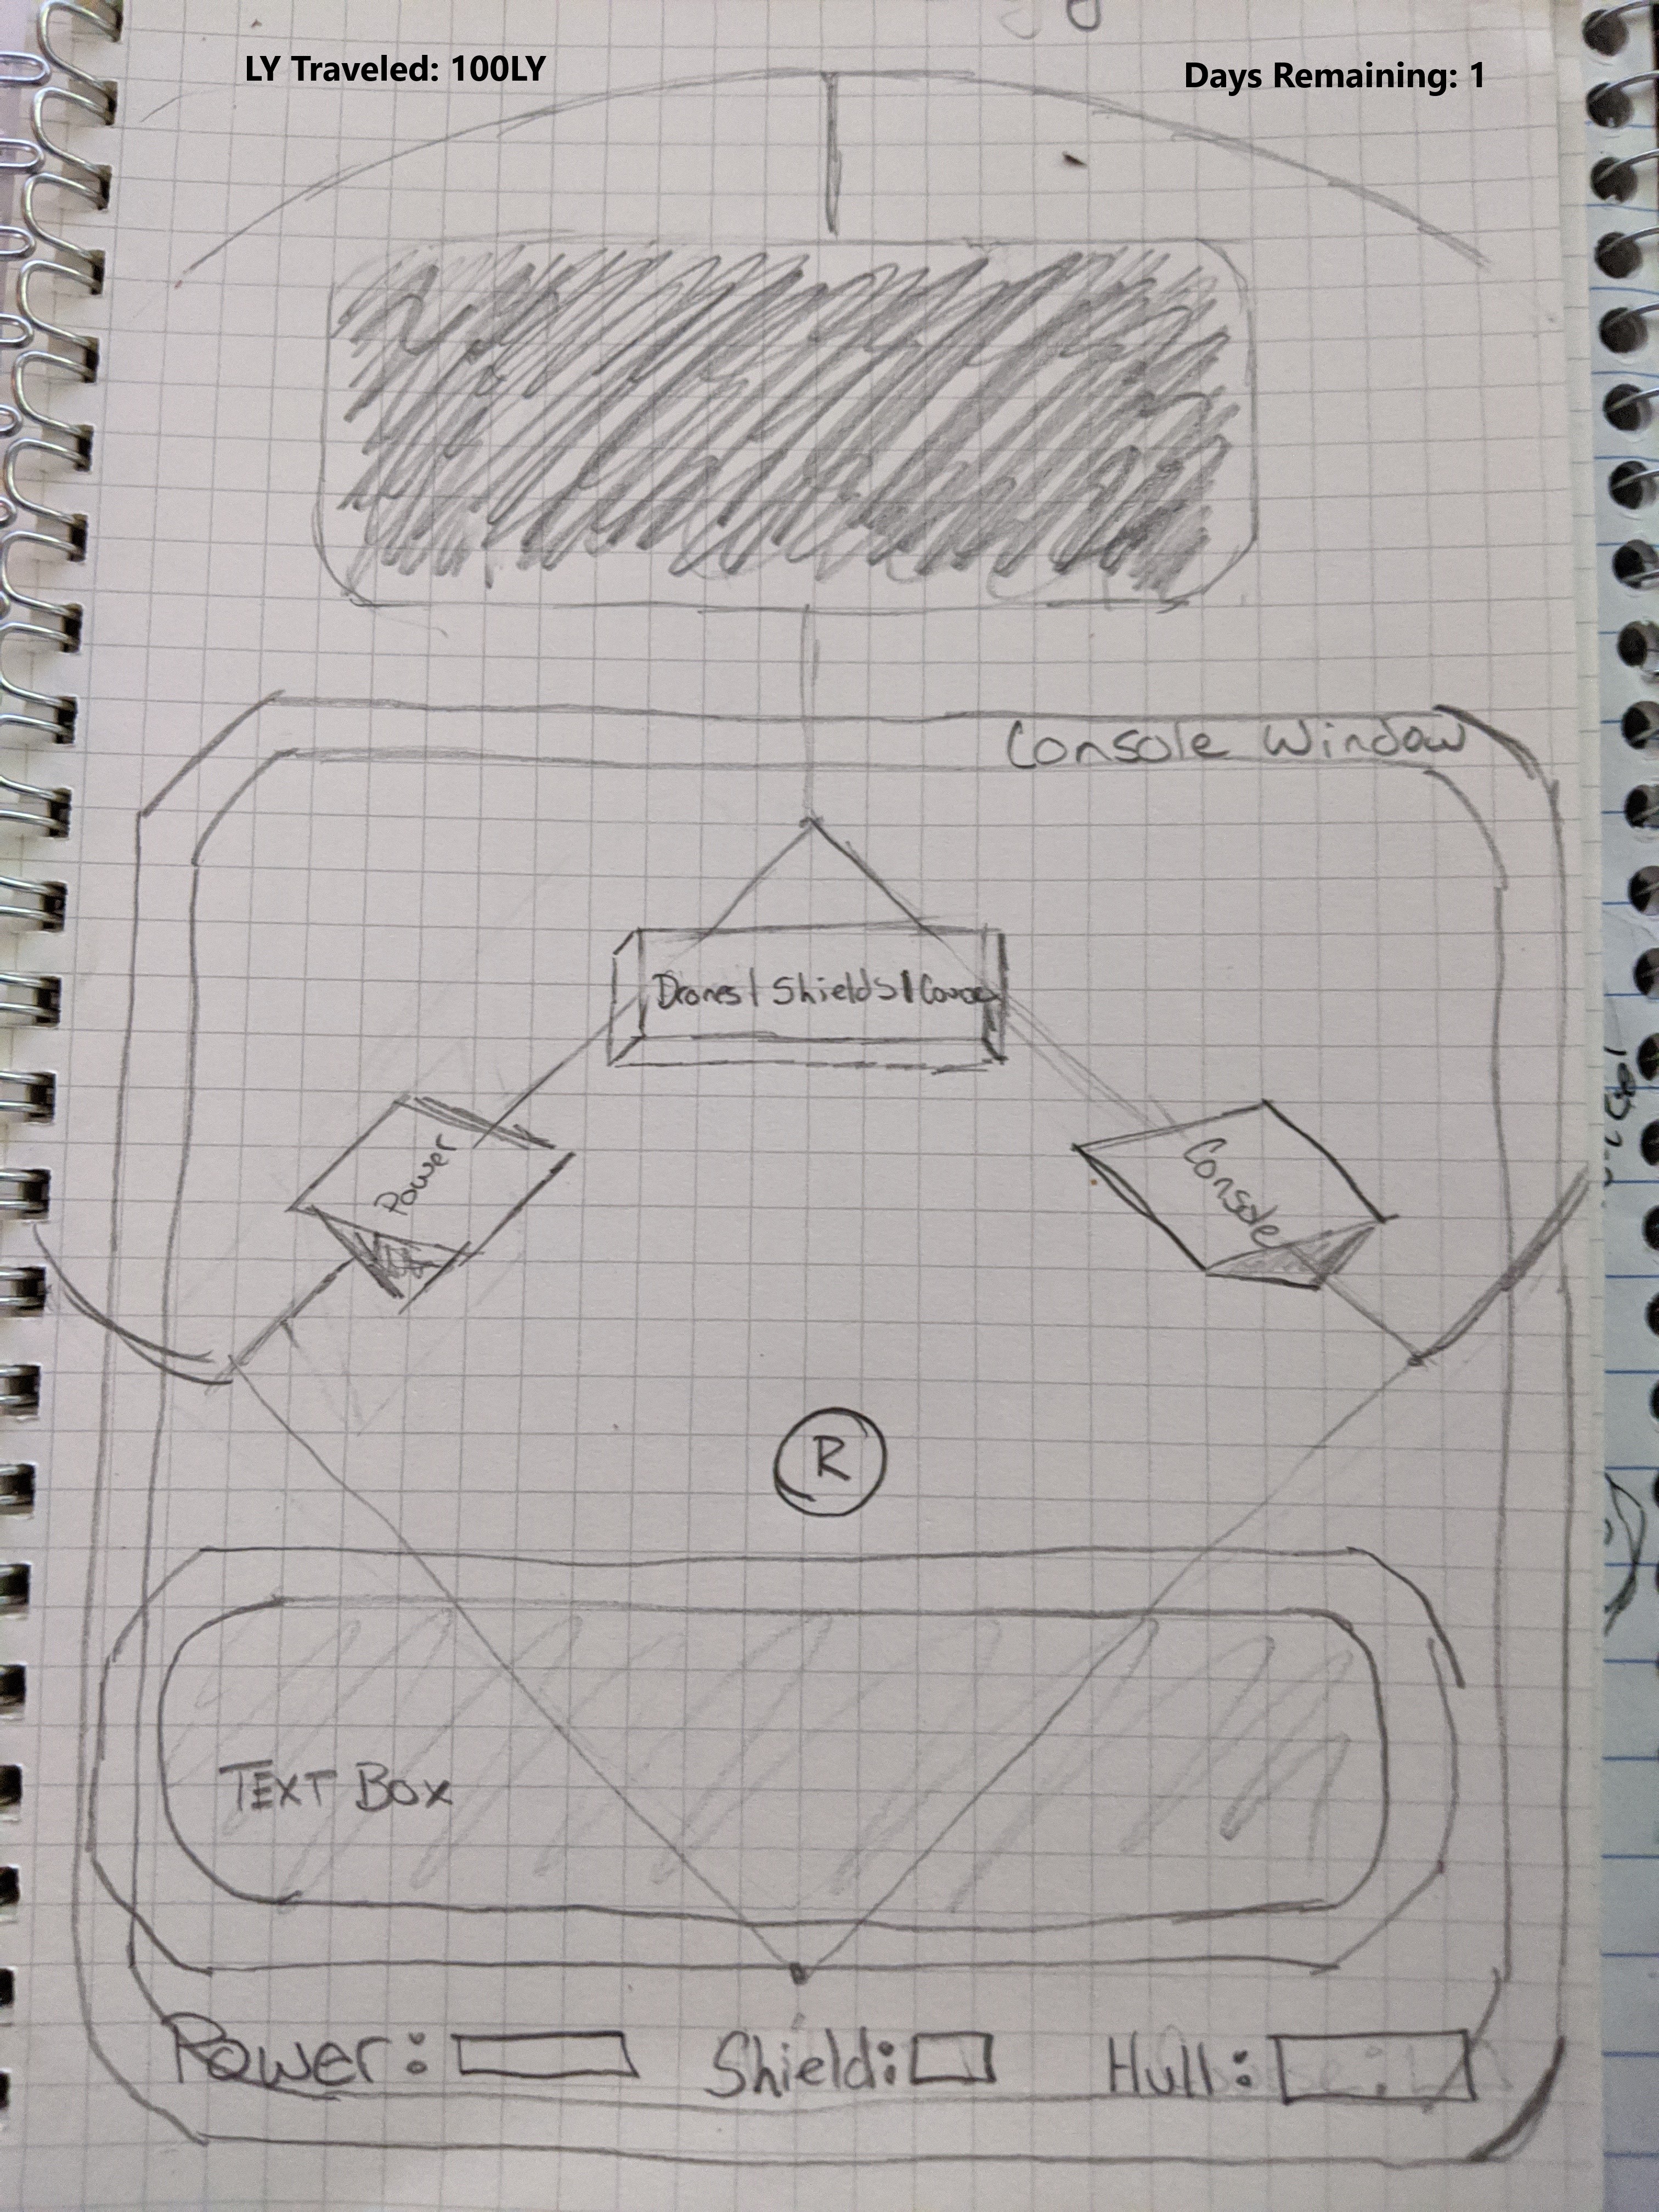 LY Traveled: 100LY
Days Remaining: 1
Console Window
Drones | Shields |
Power
Console
R
TEXT BOX
Power:
Shield:
Hull: